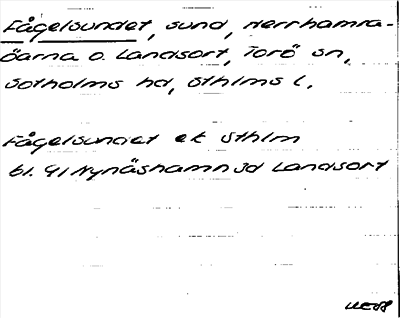 Fågelsundet, sund, Herrhamra-
öarna o. Landsort, Torö sn,
Sotholms hd, Sthlms l.
Fågelsundet ek Sthlm
bl. 41 Nynäshamn Sd Landsort